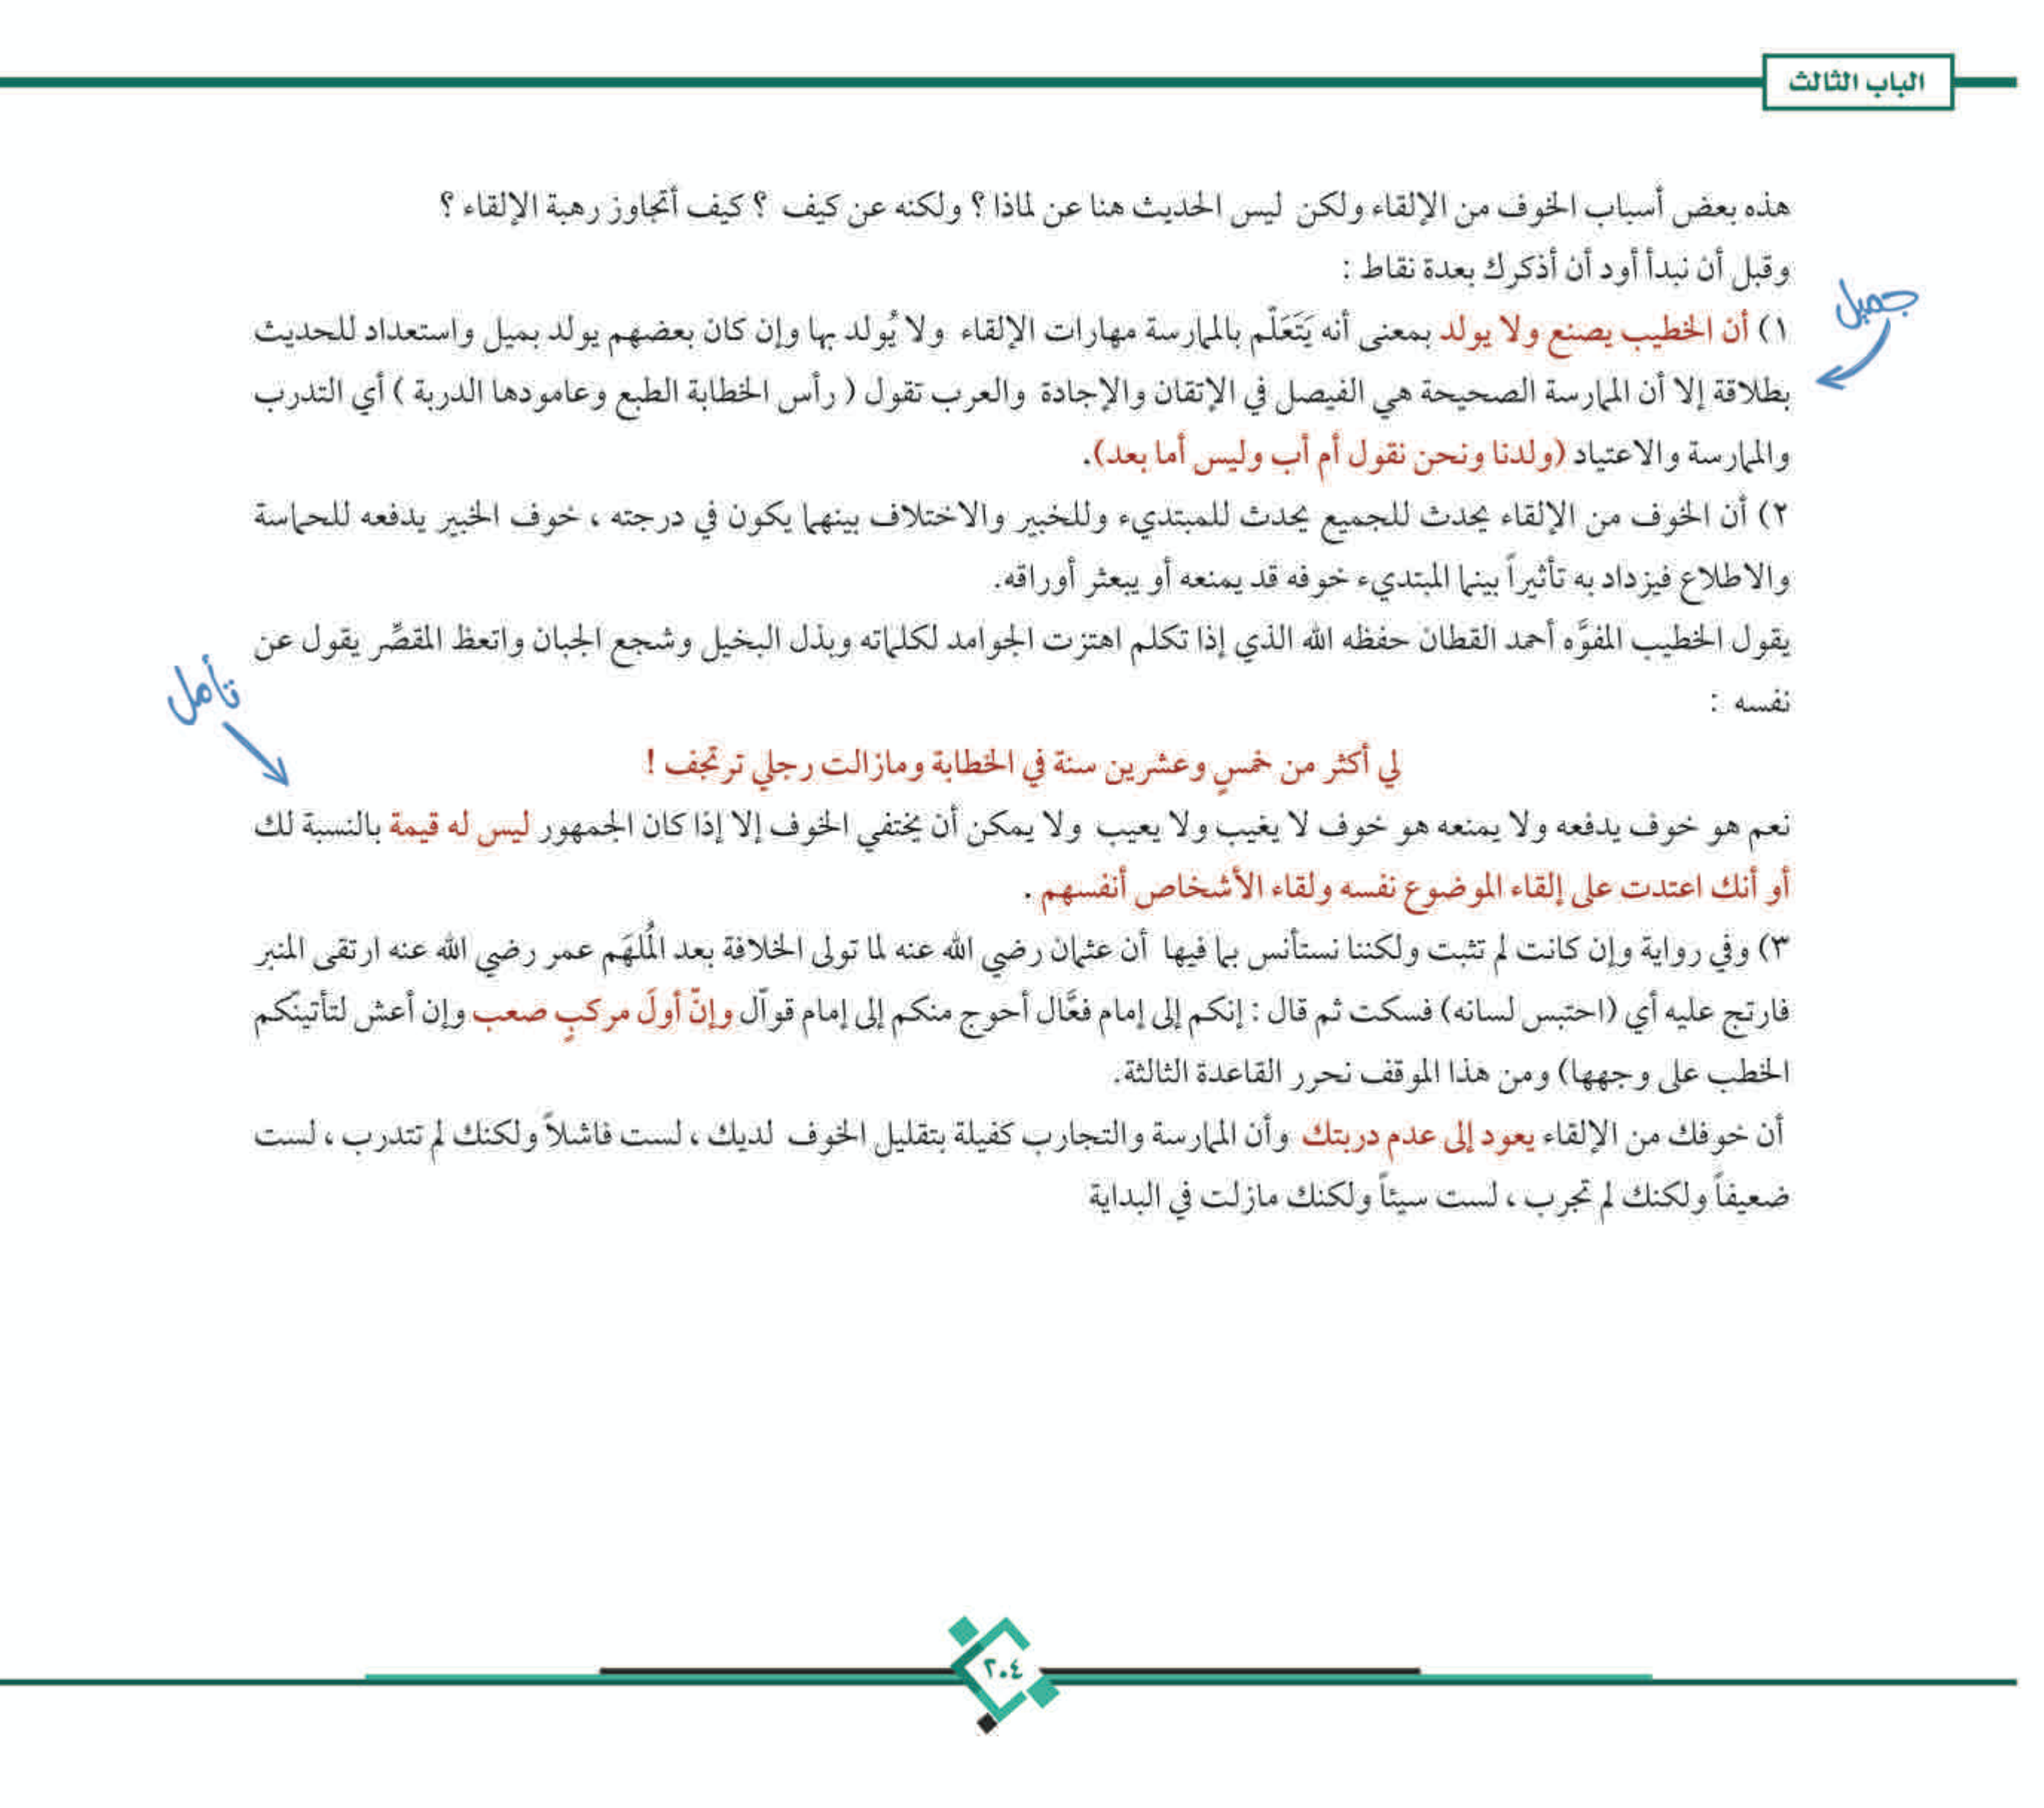 الباب الثالث
هذه بعض أسباب الخوف من الإلقاء ولكن ليس الحديث هنا عن لماذا ؟ ولكنه عن كيف ؟ كيف أتجاوز رهبة الإلقاء ؟
وقبل أن نبدأ أود أن أذكرك بعدة نقاط :
جميل
١) أن الخطيب يصنع ولا يولد بمعنى أنه يَتَعَلّم بالممارسة مهارات الإلقاء ولا يُولد بها وإن كان بعضهم يولد بميل واستعداد للحديث
بطلاقة إلا أن الممارسة الصحيحة هي الفيصل في الإتقان والإجادة والعرب تقول ( رأس الخطابة الطبع وعامودها الدربة ) أي التدرب
والممارسة والاعتياد (ولدنا ونحن نقول أم أب وليس أما بعد).
٢) أن الخوف من الإلقاء يحدث للجميع يحدث للمبتديء وللخبير والاختلاف بينهما يكون في درجته ، خوف الخبير يدفعه للحماسة
والاطلاع فيزداد به تأثيراً بينما المبتديء خوفه قد يمنعه أو يبعثر أوراقه.
يقول الخطيب المفوَّه أحمد القطان حفظه الله الذي إذا تكلم اهتزت الجوامد لكلماته وبذل البخيل وشجع الجبان واتعظ المقصِّر يقول عن
نفسه :
تأمل
لي أكثر من خمسٍ وعشرين سنة في الخطابة ومازالت رجلي ترتجف !
نعم هو خوف يدفعه ولا يمنعه هو خوف لا يغيب ولا يعيب ولا يمكن أن يختفي الخوف إلا إذا كان الجمهور ليس له قيمة بالنسبة لك
أو أنك اعتدت على إلقاء الموضوع نفسه ولقاء الأشخاص أنفسهم .
٣) وفي رواية وإن كانت لم تثبت ولكننا نستأنس بما فيها أن عثمان رضي الله عنه لما تولى الخلافة بعد المُلهَم عمر رضي الله عنه ارتقى المنبر
فارتج عليه أي (احتبس لسانه) فسكت ثم قال : إنكم إلى إمام فعَّال أحوج منكم إلى إمام قوآل وإنّ أولَ مركبٍ صعب وإن أعش لتأتينّكم
الخطب على وجهها) ومن هذا الموقف نحرر القاعدة الثالثة.
أن خوفك من الإلقاء يعود إلى عدم دربتك وأن الممارسة والتجارب كفيلة بتقليل الخوف لديك ، لست فاشلاً ولكنك لم تتدرب ، لست
ضعيفاً ولكنك لم تجرب ، لست سيئاً ولكنك مازلت في البداية
٢٠٤